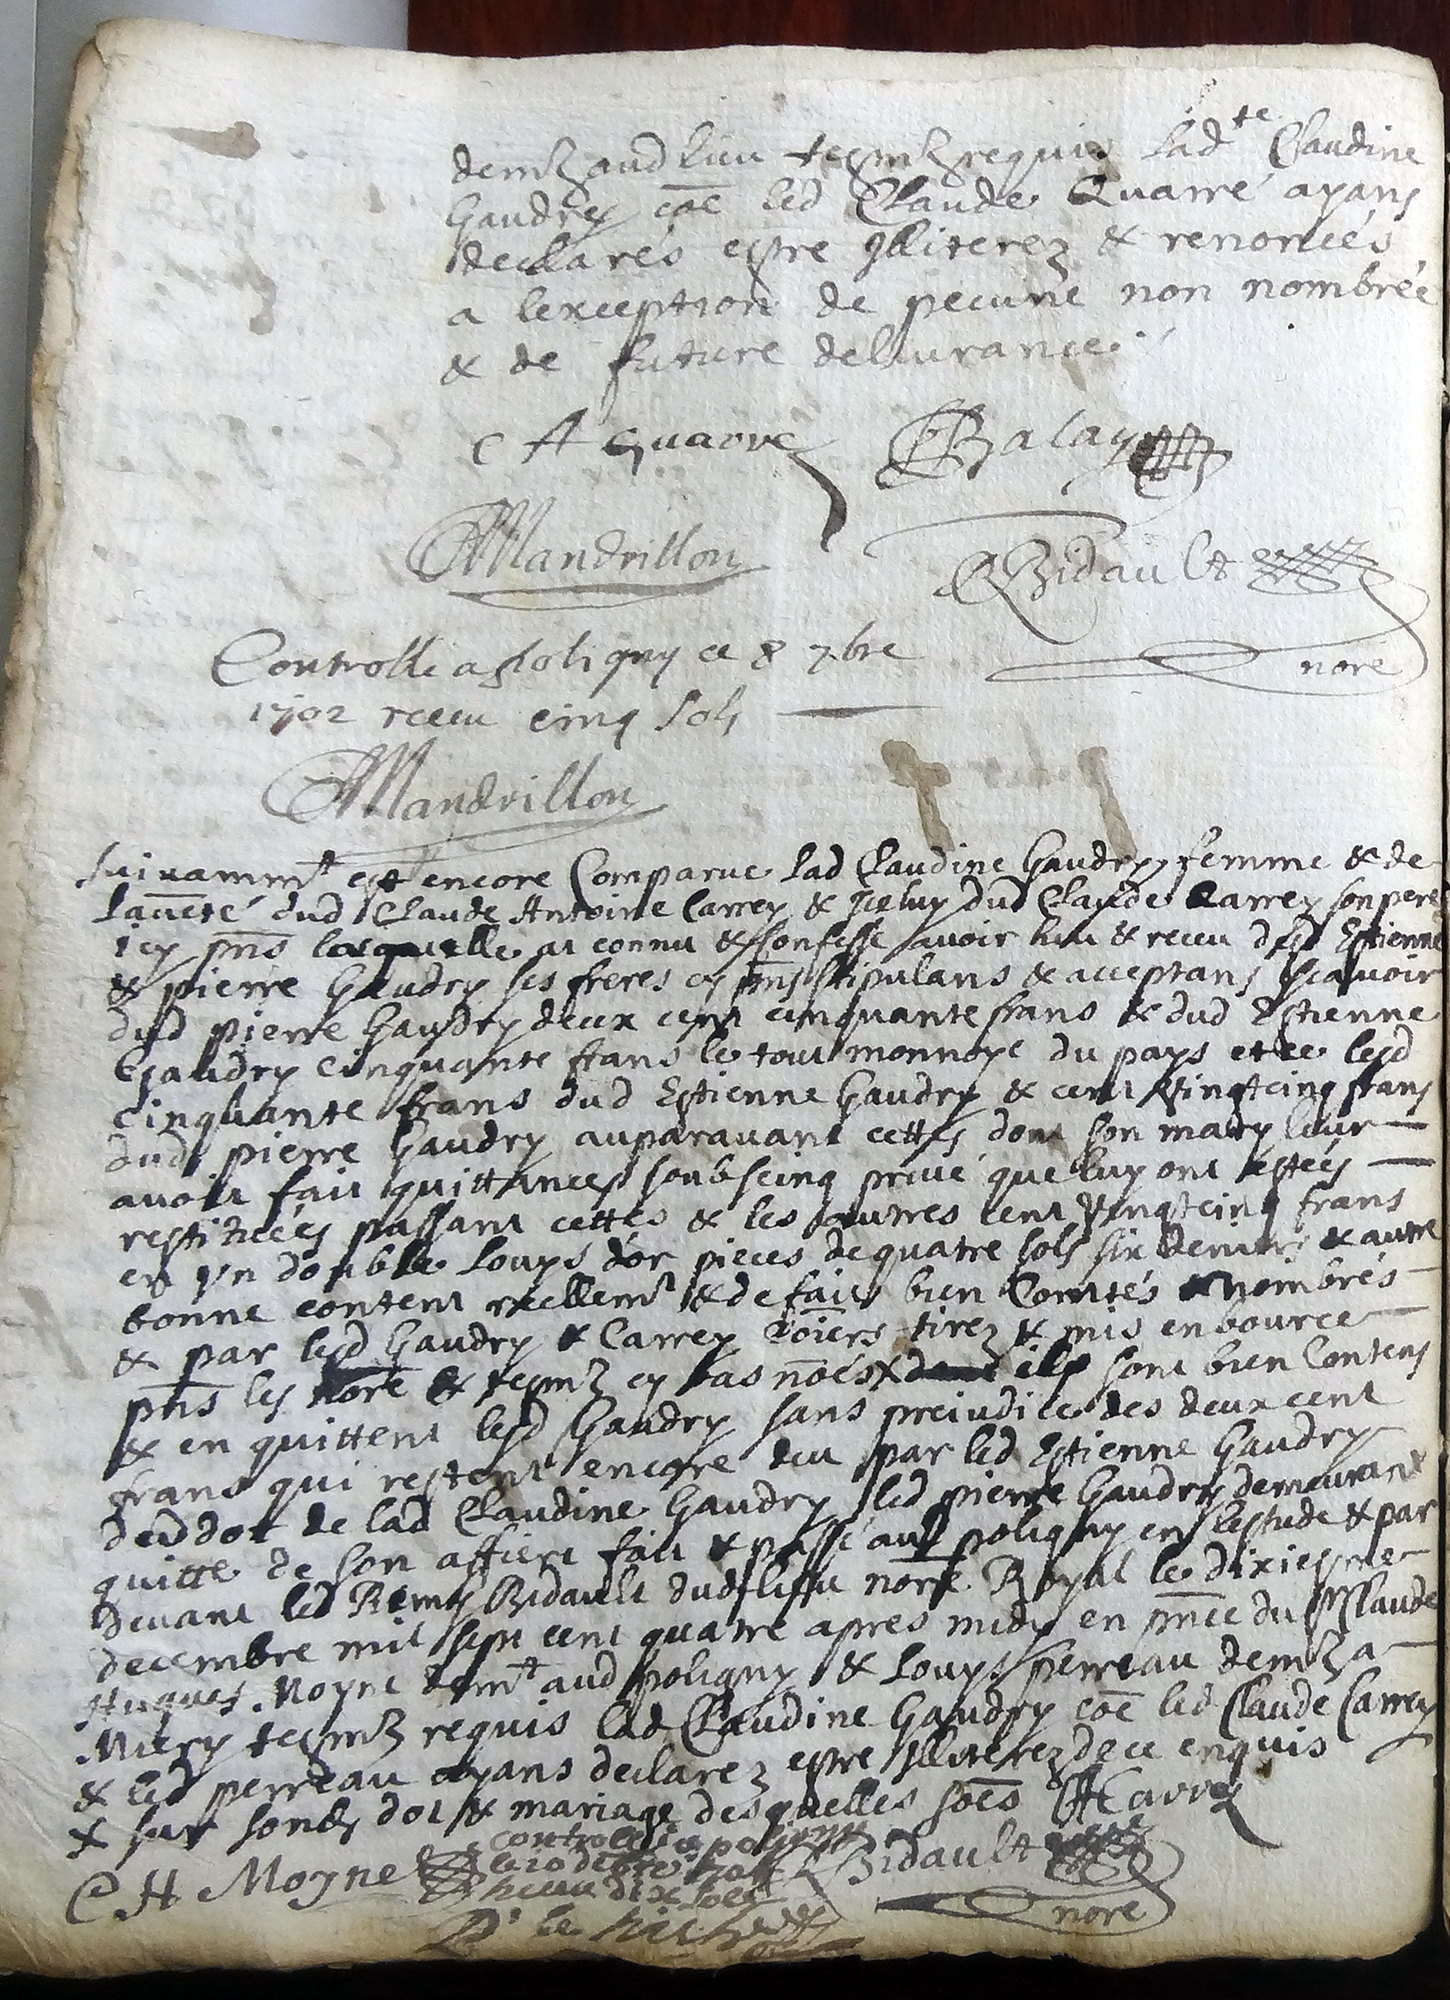 demt aud lieu tesmt requis lad.te Claudine
Gaudry coe led Claude Quarré ayans
declarés estre Illiterez & renoncés
a lexception de pecune non nombrée
& de future deliurance
C A Quarre Balay
Mandrillon Bidault
nore
Controllé a poligny ce 8 7.bre
1702 receu cinq sols
Mandrillon
Suivammt est encore Comparue lad Claudine Gaudry femme & de
lauctté dud Claude Antoine Carrey & Iceluy dud Claude Carrey son pere
icy pns laquelle at connu & Confesse avoir heu & receu desd Estienne
& pierre Gaudry ses freres cy pns stipulans & acceptans scavoir
dud pierre Gaudry deux cent cinquante frans & dud Estienne
Gaudry cinquante frans le tout monnoye du pays et ce lesd
cinquante frans dud Estienne Gaudry & cent Vingtcinq frans
dud pierre Gaudry auparavant cettes dont son mary leur
avoit fait quittances soubseing privé que luy ont estées
restituées passant cettes & les autres cent Vingtcinq frans
en Vn double Louys dor pieces de quatre sols six deniers & autre
bonne content reellemt & de faict bien Comtés & nombrés
& par lesd Gaudry & Carrey tirez & mis en bource
pns les nore & tesmt cy bas noés ils sont bien Contens
& en quittent lesd Gaudry sans preiudice des deux cent
frans qui restent encore deu par led Estienne Gaudry
deud dot de lad Claudine Gaudry led pierre Gaudry demeurant
quitte de son affiert fait & passé aud poligny en lestude & par
devant led Remy Bidault dud lieu nore Royal le dixiesme
decembre mil sept cent quatre apres midy en pnce du sr Claude
Hugues Moyne demt aud poligny & Louys perreau demt a
Miery tesmt requis lad Claudine Gaudry coe led Claude Carrey
& led perreau ayans declarez estre Illiterez de ce enquis
& sur dot & mariage desquelles soes CA Carrey
C. H Moyne controllé a poligny Bidault
le 10 debre 1704
heceu dix sols nore